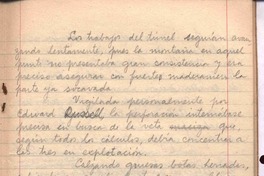 Los trabajos del túnel seguían avan
zando lentamente, pues la montaña en aquel
punto no presentaba gran consistencia y era
preciso asegurar con fuertes maderámenes la
parte ya socavada.
Vigilada personalmente por
Edward Russell, la perforación internábase
en busca de la veta que,
según todos los cálculos, debía concentrar a
las tres en explotación.
Calzando gruesas botas herradas,